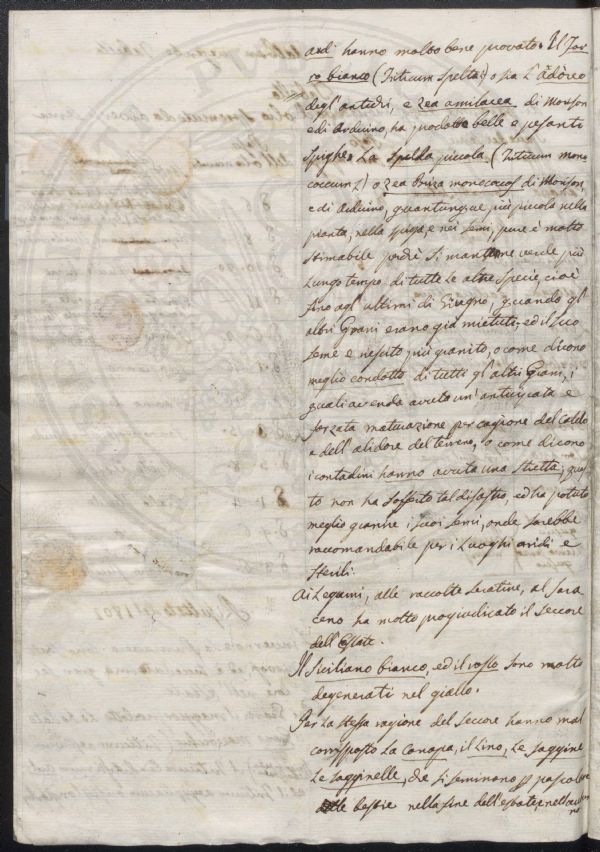 aridi hanno molto bene provato. Il Far
ro bianco (Triticum Spelta) o sia L'Adòreo
degl'antichi, e Zea amilacea di Morison
e di Arduino, ha prodotte belle e pesanti
Spighe. La Spelda piccola (Triticum mono
coccum L) o Zea Briza monococcos di Morison,
e di Arduino, quantunque più piccola nella
pianta, nella spiga, e nei semi, pure è molto
stimabile perchè si mantiene verde più
Lungo tempo di tutte Le altre Specie, cioè
fino agl'ultimi di Giugno, quando gl'
altri Grani erano già mietuti, ed il suo
seme e riescito più granito, o come dicono
meglio condotto di tutti gl'altri Grani, i
quali avendo avuto un'anticipata e
forzata maturazione per cagione del Caldo
e dell'alidore del terreno, o come dicono
i contadini hanno avuta una stretta, ques
to non ha sofferto tal disastro ed ha potuto
meglio granire i suoi semi, onde sarebbe
raccomandabile per i Luoghi aridi e
sterili.
Ai Legumi, alle raccolte serotine, al Sara
ceno ha molto pregiudicato il Seccore
dell'Estate.
Il Siciliano bianco, ed il rosso sono molto
degenerati nel giallo.
Per La stessa ragione del Seccore hanno mal
corrisposto La Canapa, il Lino, Le Saggine
Le Sagginelle, che si seminano per pascolare
bestie nella fine dell'estate, e nell'